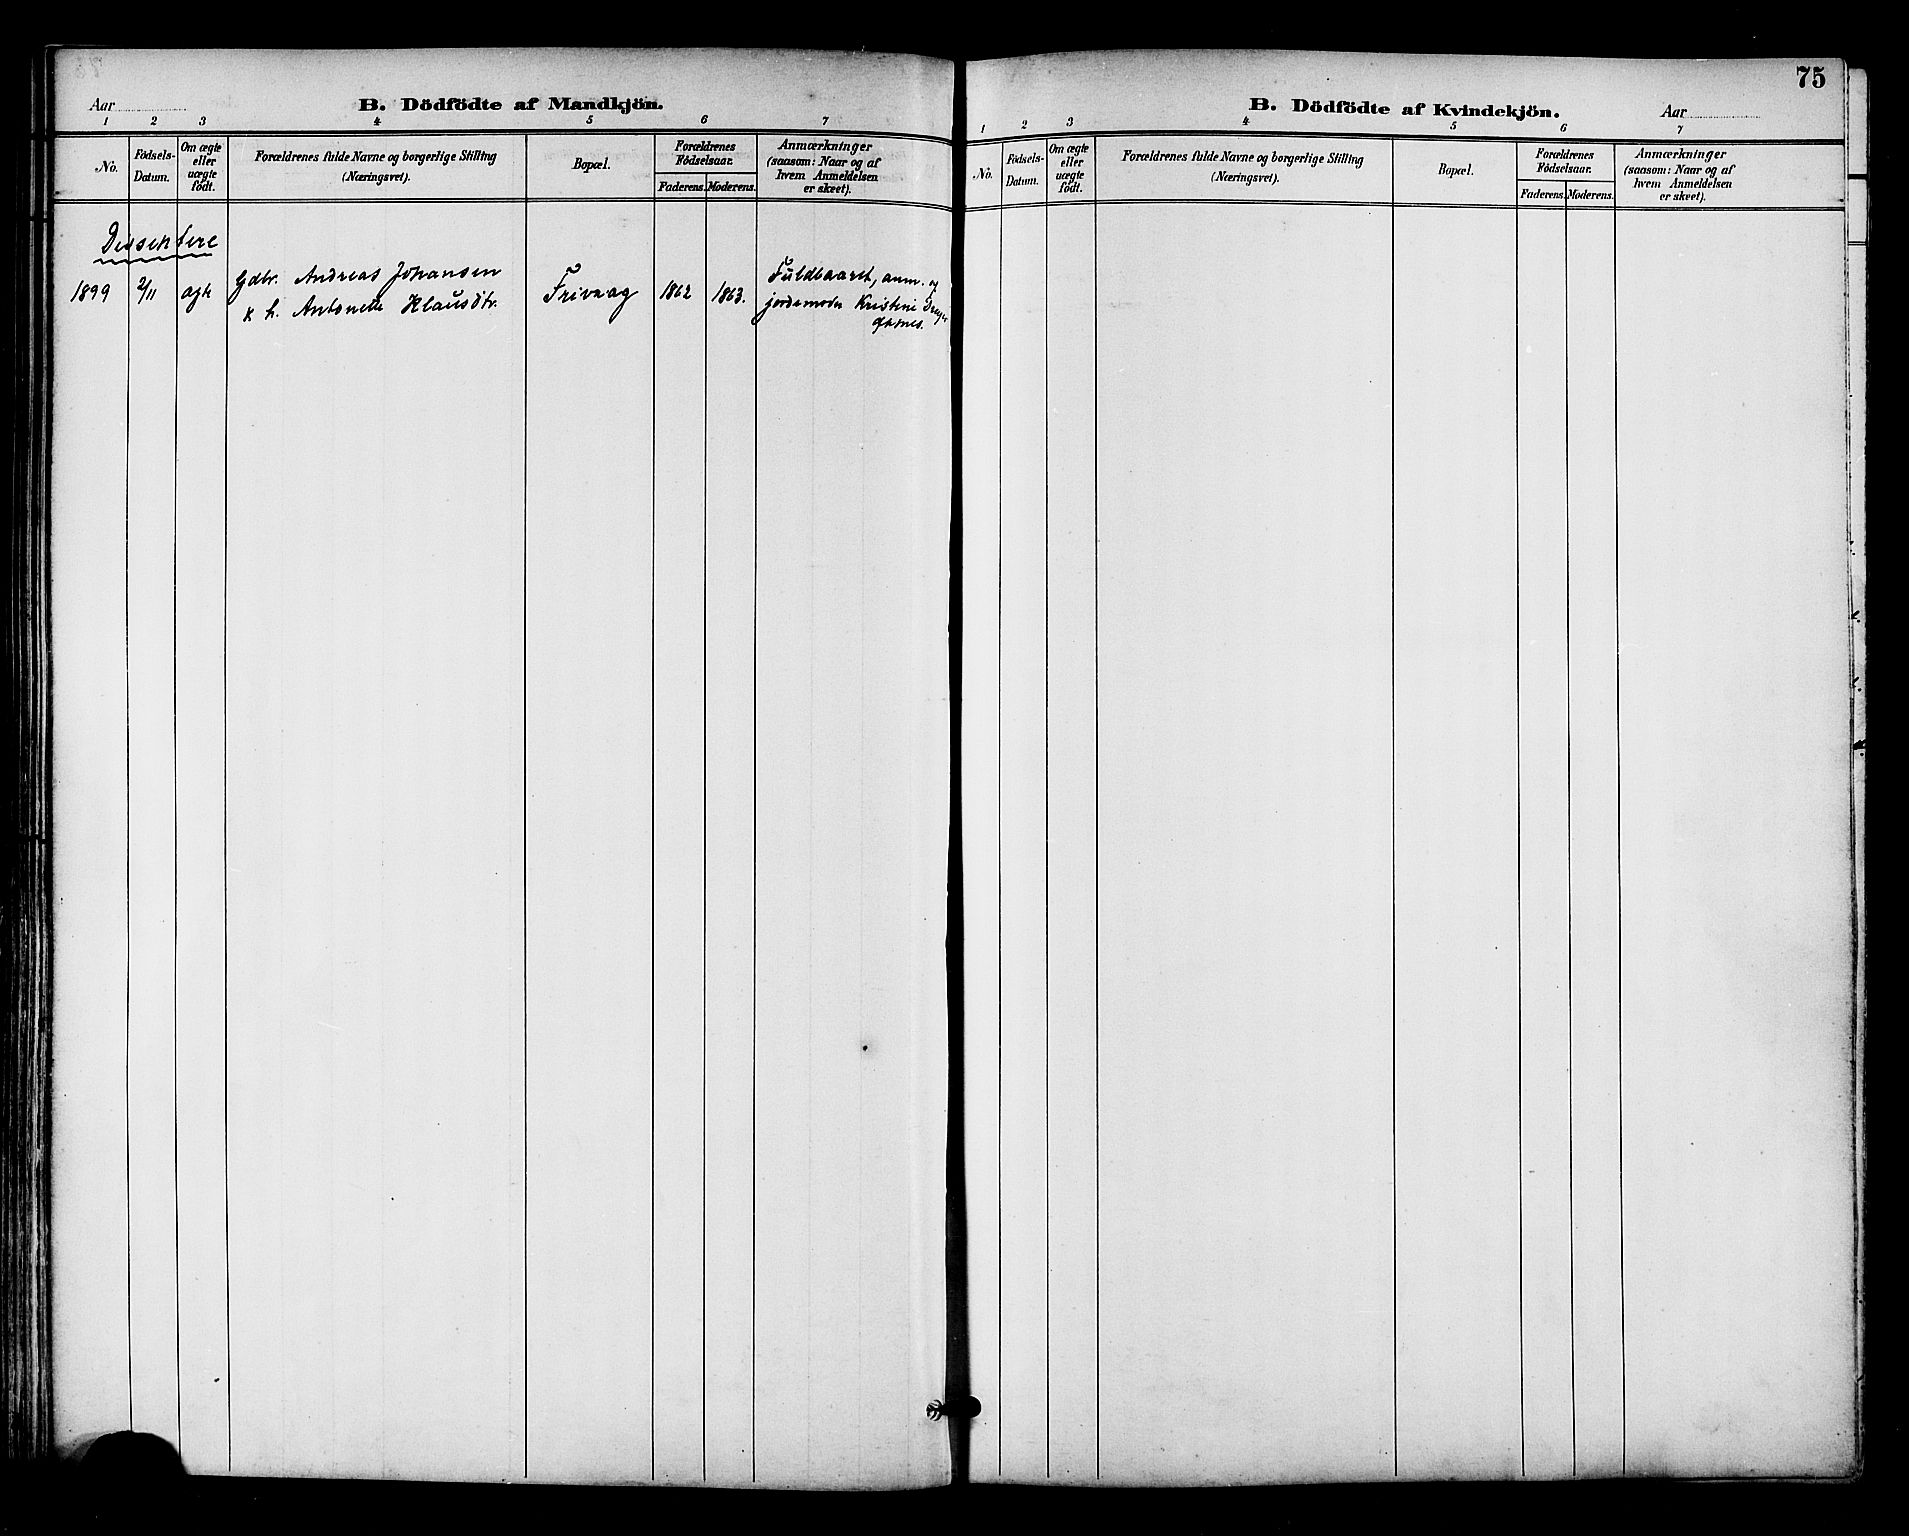 Aar
B. Dödfödte af Mandkjön.
1 2 3 4 5 6 7
No.
Födsels-
Datum.
Om ægte
eller
uægte
födt.
Forældrenes fulde Navne og borgerlige Stilling
(Næringsvei).
Bopæl.
Forældrenes
Födselsaar.
Faderens. Moderens.
Anmærkninger
(saasom: Naar og af
hvem Anmeldelsen
er skeet).
Dissentere
1899 2/11 ægte
Gdbr. Andreas Johansen
k h. Antonette Klausdtr.
Trivaag
1862 1863.
Fuldbaaret, anm. og
jordemoder Kristine
75
B. Dödfödte af Kvindekjön.
Aar
1 2 3 4 5 6 7
No.
Födsels-
Datum.
Om ægte
eller
uægte
födt.
Forældrenes fulde Navne og borgerlige Stilling
(Næringsvei).
Bopæl.
Forældrenes
Födselsaar.
Faderens. Moderens.
Anmærkninger
(saasom: Naar og af
hvem Anmeldelsen
er skeet).